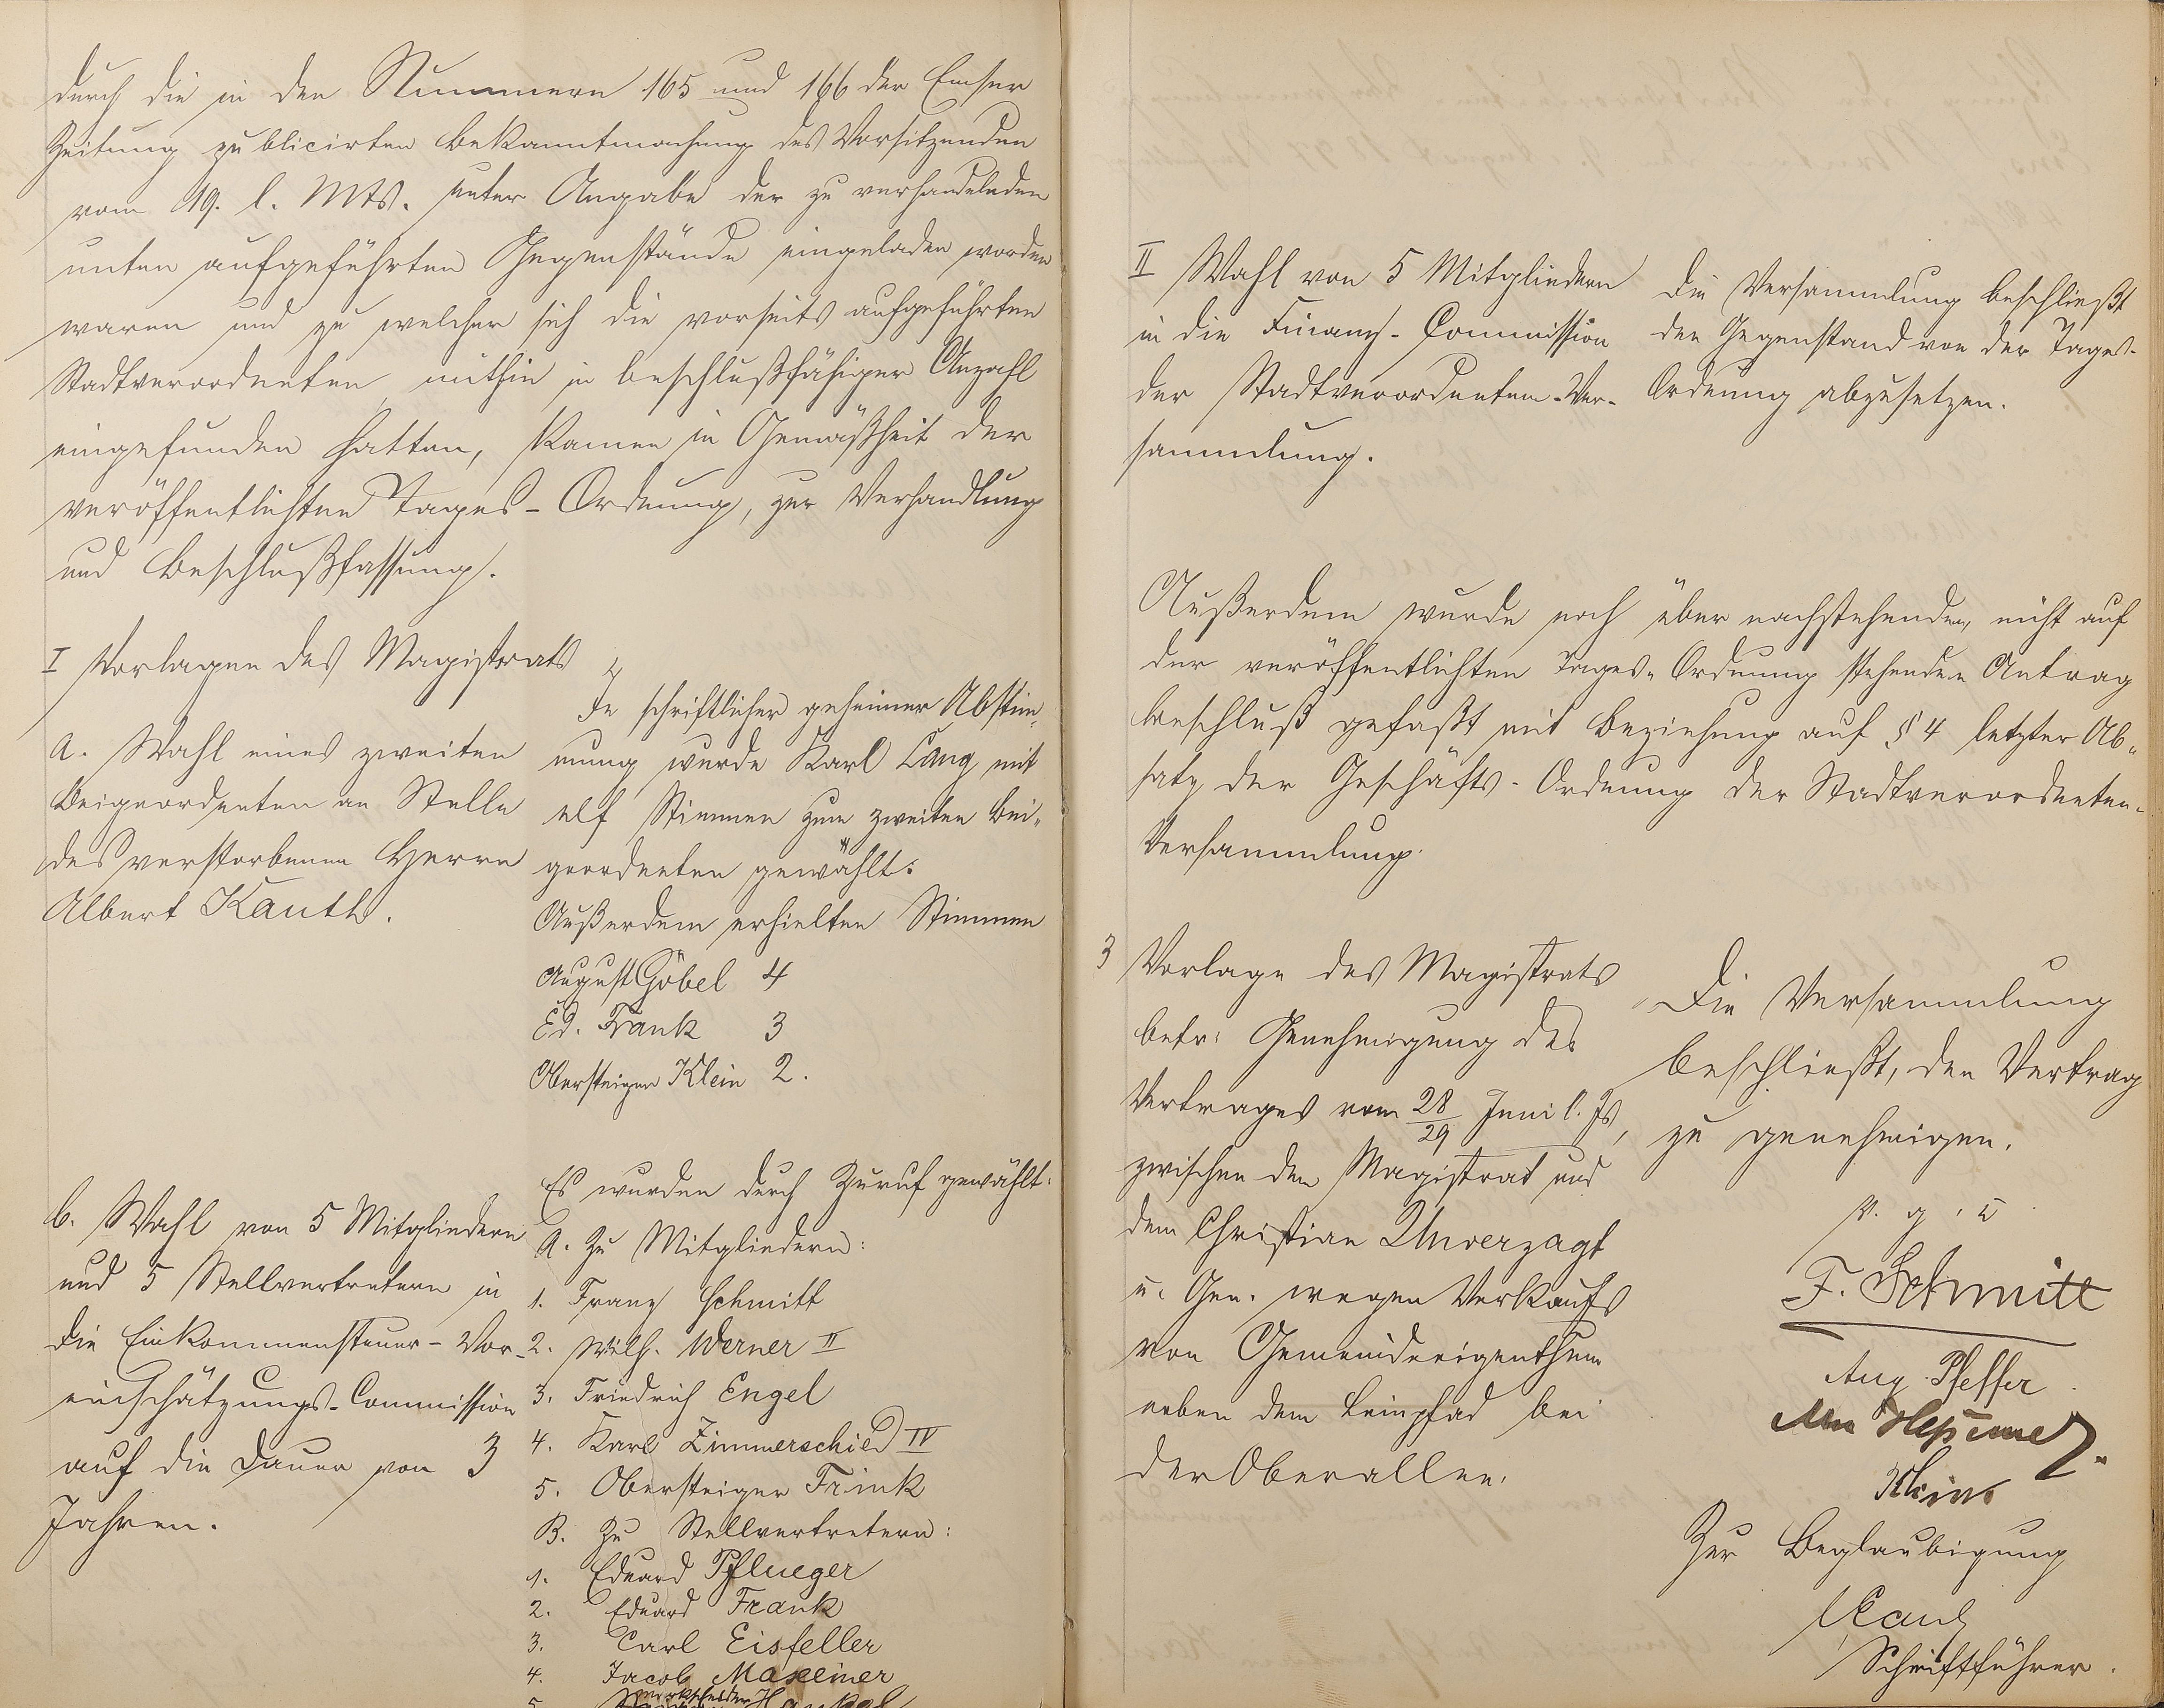 durch die in den Nummern 165 und 166 der Emser
Zeitung publicirten Bekanntmachung des Vorsitzenden
vom 19. l. Mts. unter Angabe der zu verhandelnden
unten aufgeführten Gegenstände eingeladen worden
waren und zu welcher sich die vorseits aufgeführten
Stadtverordneten, mithin in beschlußfähiger Anzahl
eingefunden hatten, kamen in Gemäßheit der
veröffentlichten Tages-Ordnung, zur Verhandlung
und Beschlußfassung.
I Vorlagen des Magistrats
a. Wahl eines zweiten
Beigeordneten an Stelle
des verstorbenen Herrn
Albert Kauth.
In schriftlicher geheimer Abstim-
mung wurde Karl Lang mit
elf Stimmen zum zweiten Bei-
geordneten gewählt.
Außerdem erhielten Stimmen
August Göbel 4
Ed. Frank 3
Obersteiger Klein 2.
b. Wahl von 5 Mitgliedern
und 5 Stellvertretern in
die Einkommensteuer-Vor-
einschätzungs-Commission
auf die Dauer von 3
Jahren.
Es wurden durch Zuruf gewählt:
A. Zu Mitgliedern:
1. Franz Schmitt
2. Wilh. Werner II
3. Friedrich Engel
4. Karl Zimmerschied IV
5. Obersteiger Frink
B. Zu Stellvertretern:
1. Eduard Pflueger
2. Eduard Frank
3. Carl Eisfeller
4. Jacob Maxeiner
5.
II Wahl von 5 Mitgliedern
in die Finanz-Commission
der Stadtverordneten-Ver-
sammlung.
Die Versammlung beschließt
den Gegenstand von der Tages-
Ordnung abzusetzen.
Außerdem wurde noch über nachstehenden, nicht auf
der veröffentlichten Tages-Ordnung stehenden Antrag
Beschluß gefaßt mit Beziehung auf § 4 letzter Ab-
satz der Geschäfts-Ordnung der Stadtverordneten-
Versammlung.
3 Vorlage des Magistrats
betr. Genehmigung des
Vertrages vom 28/29 Juni l. Js,
zwischen dem Magistrat und
dem Christian Unverzagt
u. Gen. wegen Verkaufs
von Gemeindeeigenthum
neben dem Leinpfad bei
der Oberallee.
Die Versammlung
beschließt, den Vertrag
zu genehmigen.
v. g. u.
F. Schmitt
Aug. Pfeffer
Klein
Zur Beglaubigung
Schriftführer.